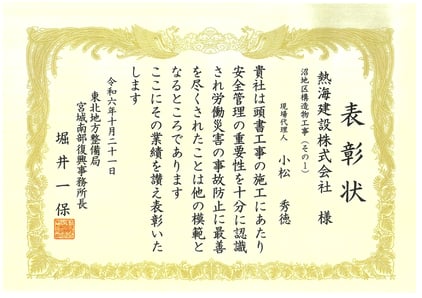 表彰状
熱海建設株式会社 様
沼地区構造物工事(その1)
現場代理人 小松 秀徳
貴社は頭書工事の施工にあたり
安全管理の重要性を十分に認識
され労働災害の事故防止に最善
を尽くされたことは他の模範と
なるところであります
ここにその業績を讃え表彰いた
します
令和六年十月二十一日
東北地方整備局
宮城南部復興事務所長
堀井一保